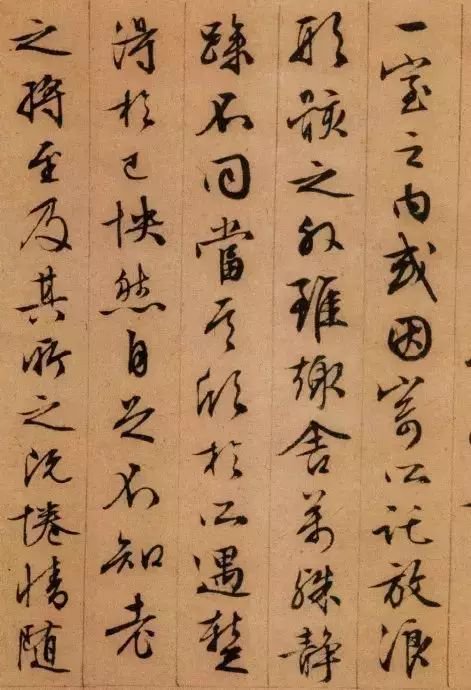 一室之内或因寄所託放浪
形骸之外雖趣舍萬殊静
躁不同當其欣於所遇蹔
得於己怏然自足不知老
之將至及其所之既惓情隨